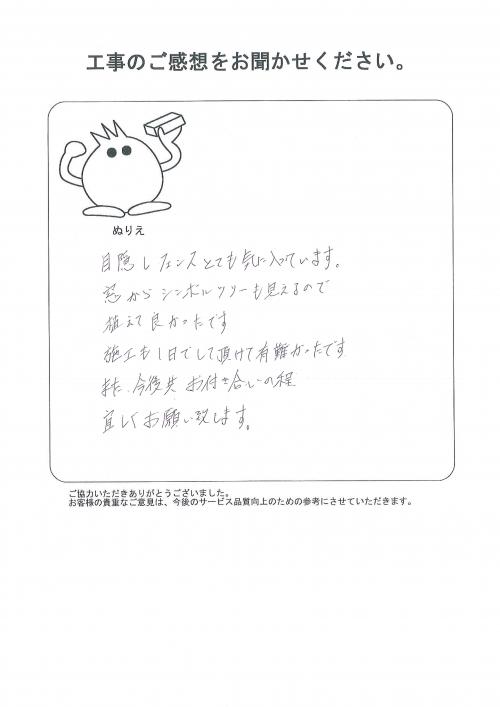 工事のご感想をお聞かせください。
ぬりえ
目隠しフェンスとても気に入っています。
窓からシンボルツリーも見えるので
植えて良かったです
施工も1日でして頂けて有難かったです
また、今後共 お付き合いの程
宜しくお願い致します。
ご協力いただきありがとうございました。
お客様の貴重なご意見は、今後のサービス品質向上のための参考にさせていただきます。